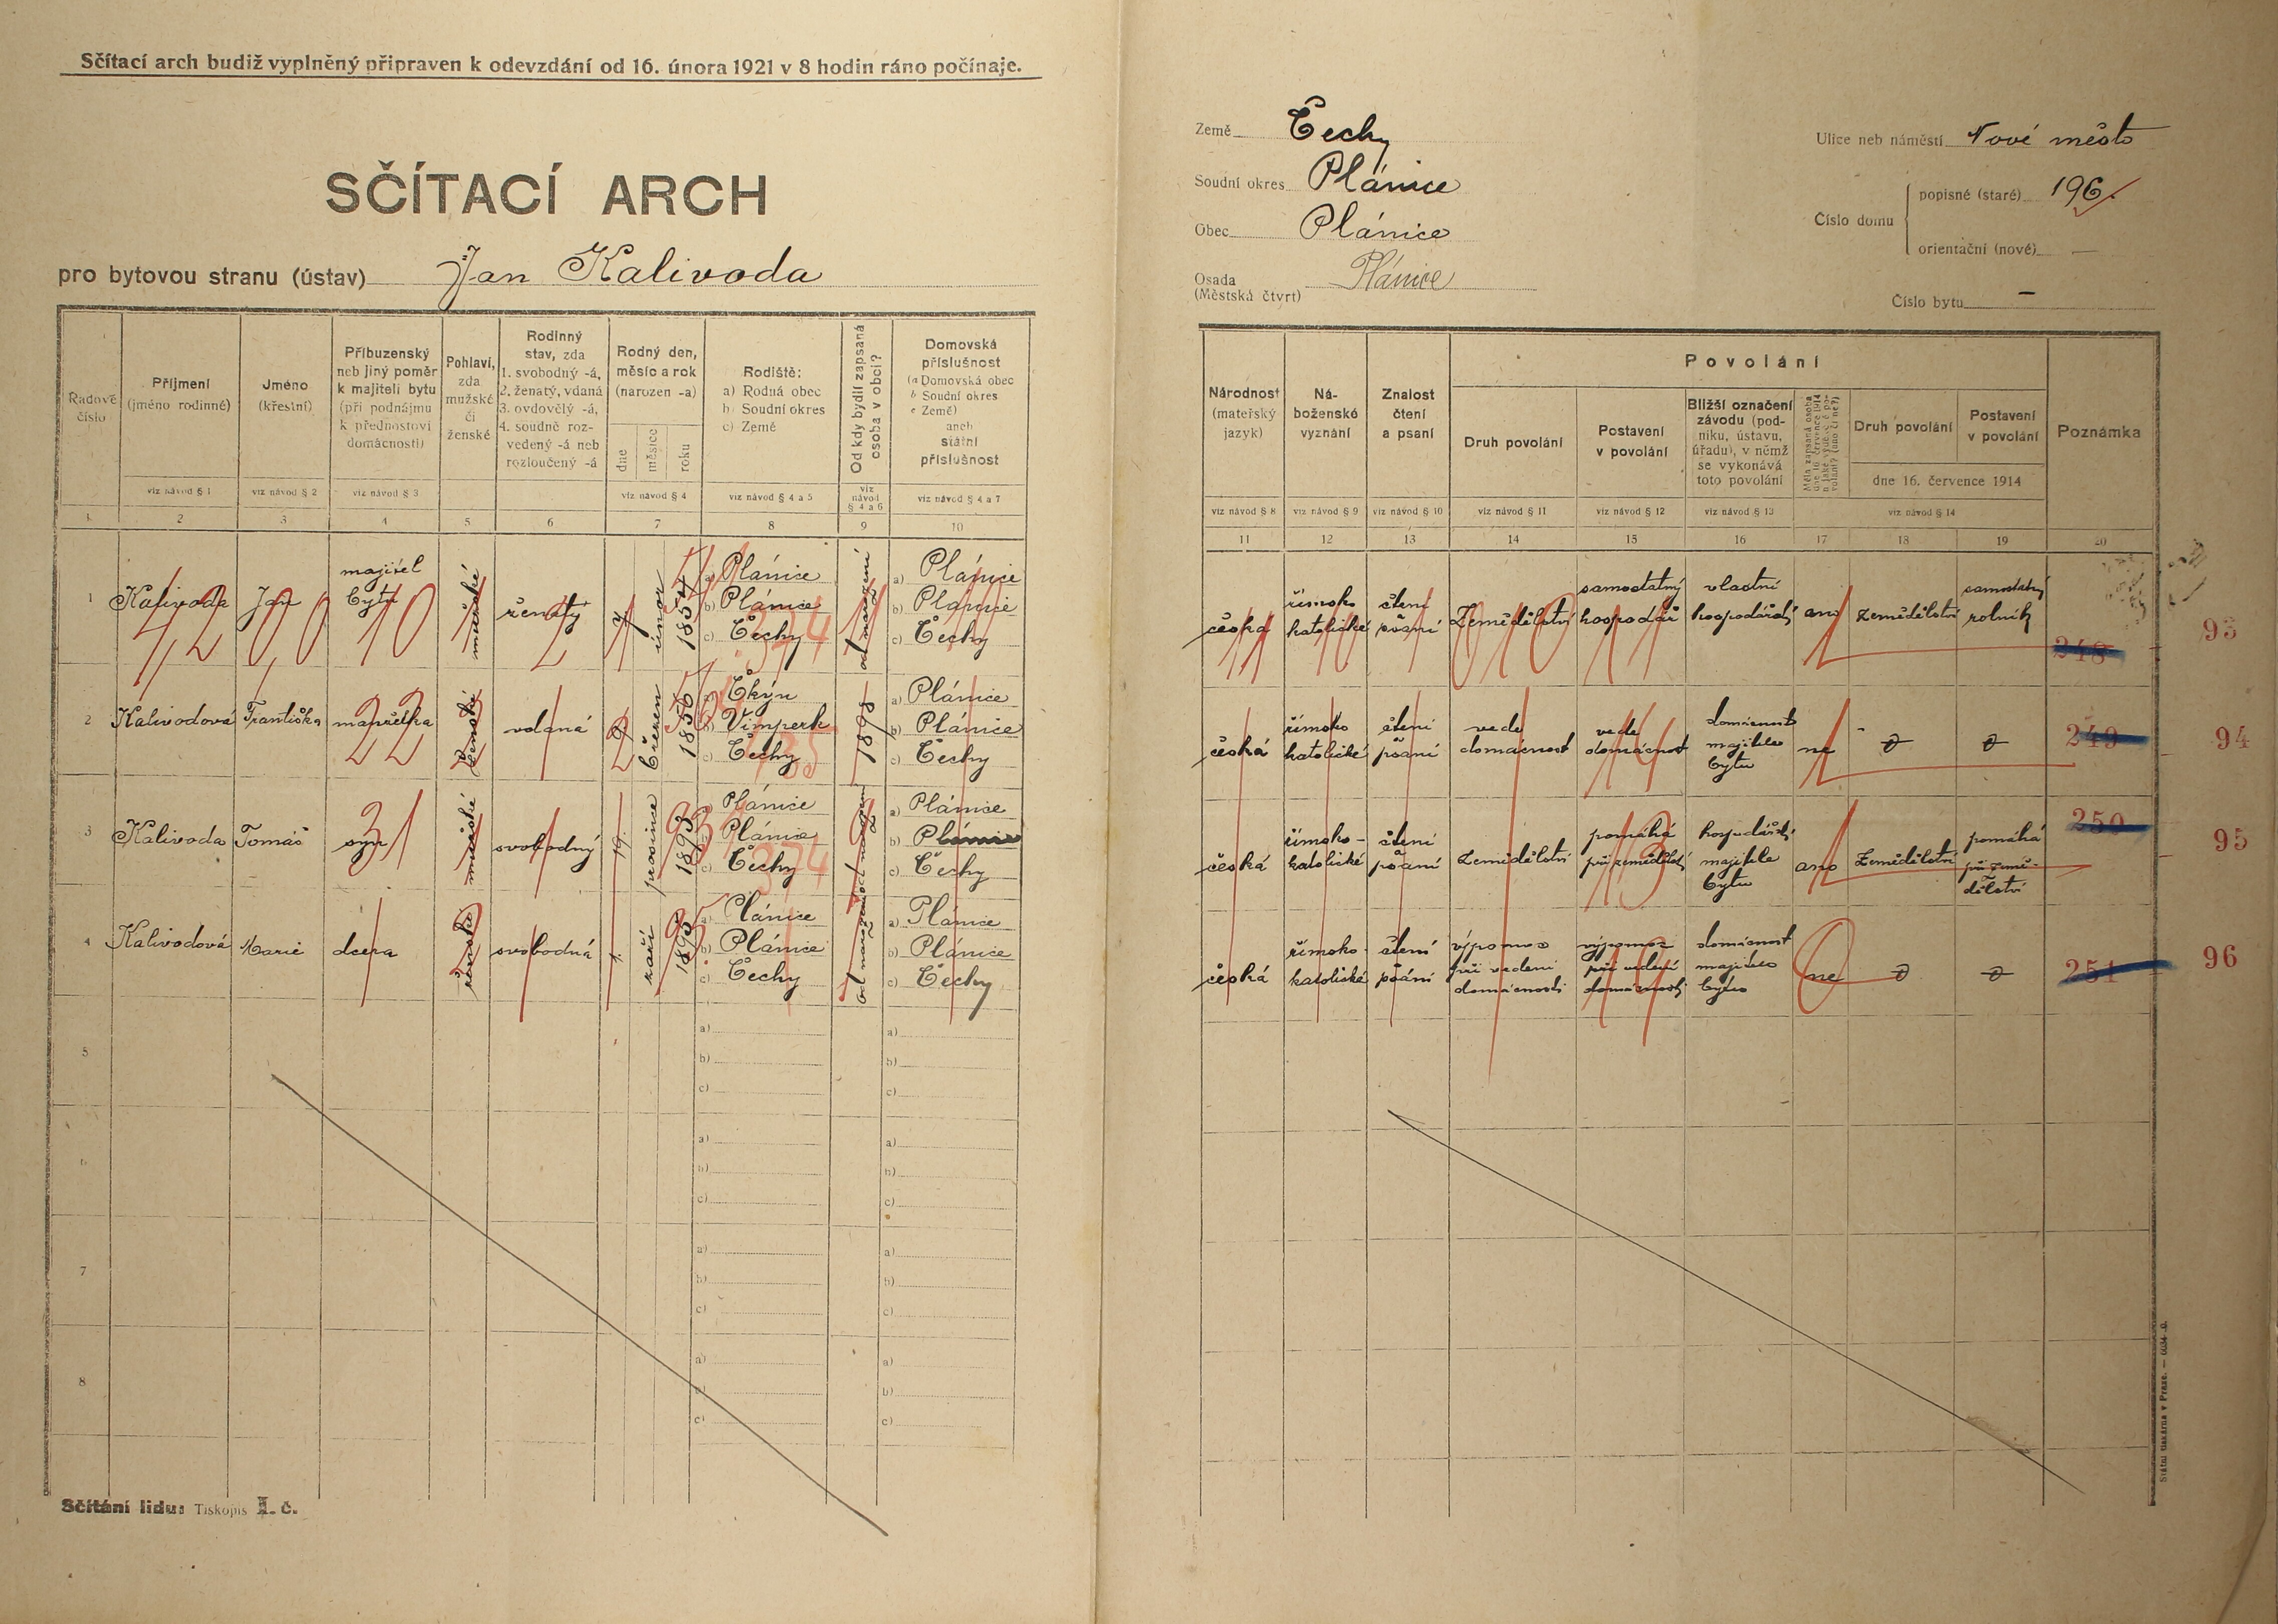 Sčítací arch budiž vyplněný připraven k odevzdání od 16. února 1921 v 8 hodin ráno počínaje.
SČÍTACÍ ARCH
pro bytovou stranu (ústav) Jan Kalivoda
Země Čechy
Soudní okres Plánice
Obec Plánice
Osada Plánice
(Městská čtvrt)
Ulice neb náměstí Nové město
Číslo domu
popisné (staré) 196
orientační (nové) —
Číslo bytu —
Řadové číslo
Příjmení (jméno rodinné)
Jméno (křestní)
Příbuzenský neb jiný poměr k majiteli bytu (při podnájmu k přednostovi domácnosti)
Pohlaví, zda mužské či ženské
Rodinný stav, zda 1. svobodný -á, 2. ženatý, vdaná 3. ovdovělý -á, 4. soudně rozvedený -á neb rozloučený -á
Rodný den, měsíc a rok (narozen -a)
dne měsíce roku
Rodiště: a) Rodná obec b) Soudní okres c) Země
Od kdy bydlí zapsaná osoba v obci?
Domovská příslušnost (a Domovská obec b Soudní okres c Země) aneb státní příslušnost
viz návod § 1 viz návod § 2 viz návod § 3 viz návod § 4 viz návod § 4 a 5 viz návod § 4 a 6 viz návod § 4 a 7
1 2 3 4 5 6 7 8 9 10
Národnost (mateřský jazyk)
Náboženské vyznání
Znalost čtení a psaní
Povolání
Druh povolání
Postavení v povolání
Bližší označení závodu (podniku, ústavu, úřadu), v němž se vykonává toto povolání
Druh povolání
Postavení v povolání
dne 16. července 1914
Poznámka
viz návod § 8 viz návod § 9 viz návod § 10 viz návod § 11 viz návod § 12 viz návod § 13 viz návod § 14
11 12 13 14 15 16 17 18 19 20
1 Kalivoda Jan majitel bytu mužské ženatý únor 1854
a) Plánice
b) Plánice
c) Čechy
od narození
a) Plánice
b) Plánice
c) Čechy
česká římsko katolické čtení psaní Zemědělství samostatný hospodář vlastní hospodářství ano zemědělství samostatný rolník
248 93
2 Kalivodová Františka manželka ženské vdaná 2 Březen 1856
a) Čkyn
b) Vimperk
c) Čechy
1898
a) Plánice
b) Plánice
c) Čechy
česká římsko katolické čtení psaní vede domácnost vede domácnost domácnost majitele bytu ne
249 94
3 Kalivoda Tomáš syn mužské svobodný 19. prosince 1893
a) Plánice
b) Plánice
c) Čechy
od narození
a) Plánice
b) Plánice
c) Čechy
česká římsko-katolické čtení psaní Zemědělství pomáhá při zemědělství hospodářství majitele bytu ano Zemědělství pomáhá při zemědělství
250 95
4 Kalivodová Marie dcera ženské svobodná 1. září 1895
a) Plánice
b) Plánice
c) Čechy
od narození
a) Plánice
b) Plánice
c) Čechy
česká římsko-katolické čtení psání výpomoc při vedení domácnosti výpomoc při vedení domácnosti domácnost majitele bytu ne
251 96
5 a) b) c) a) b) c)
6 a) b) c) a) b) c)
7 a) b) c) a) b) c)
8 a) b) c) a) b) c)
Sčítání lidu: Tiskopis I. č.
Státní tiskárna v Praze.